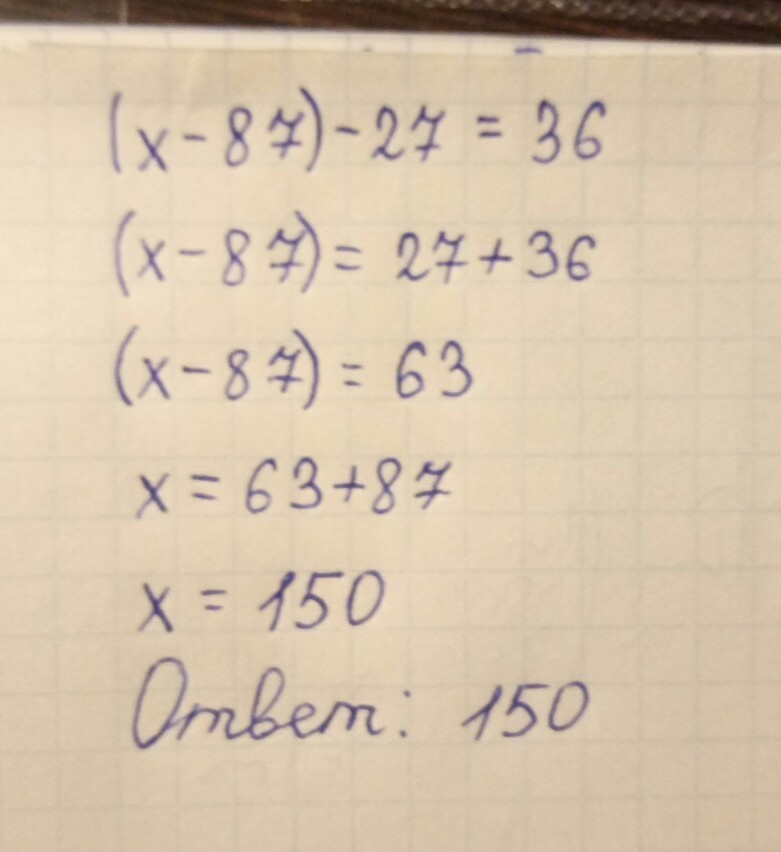 (x-87)-27 = 36
(x-87)= 27+36
(x-87)= 63
x= 63+87
x = 150
Ответ: 150